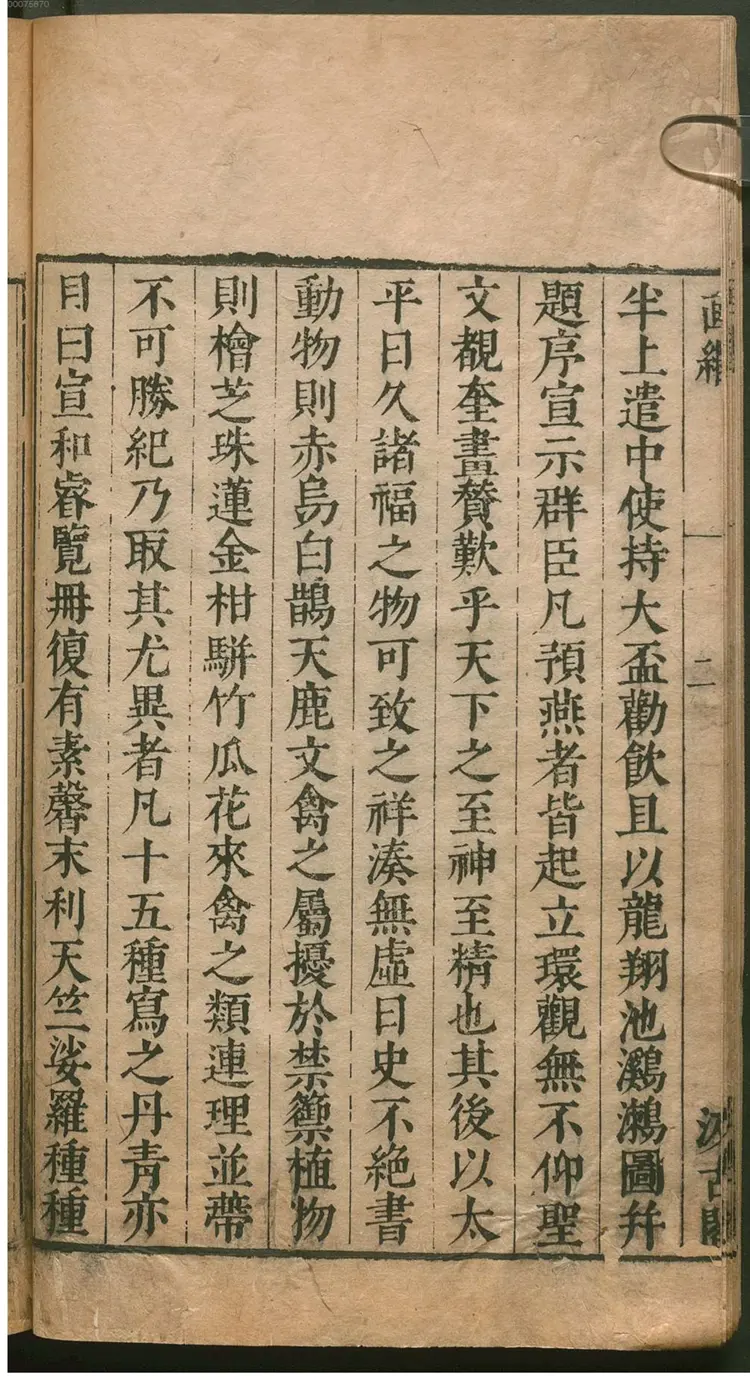 00075870
畫繼
一
二
汲古閣
半上遣中使持大盃勸飲且以龍翔池鸂鶒圖幷
題序宣示群臣凡預燕者皆起立環觀無不仰聖
文覩奎畫贊歎乎天下之至神至精也其後以太
平日久諸福之物可致之祥湊無虛日史不絕書
動物則赤烏白鵲天鹿文禽之屬擾於禁籞植物
則檜芝珠蓮金柑駢竹瓜花來禽之類連理並蔕
不可勝紀乃取其尤異者凡十五種寫之丹青亦
目曰宣和睿覽冊復有素馨末利天竺娑羅種種